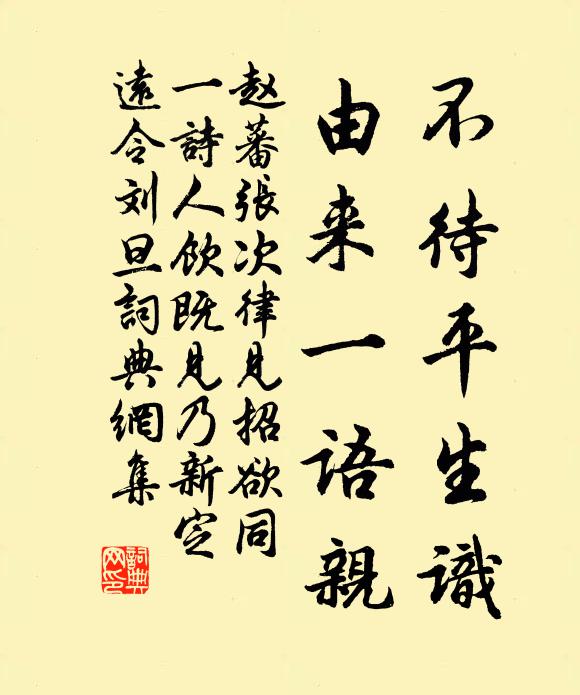 不待平生識
由来一语親
赵蕃張次律見招欲同
一詩人飲既見乃新定
遠令刘旦詞典網集
詞典
网印